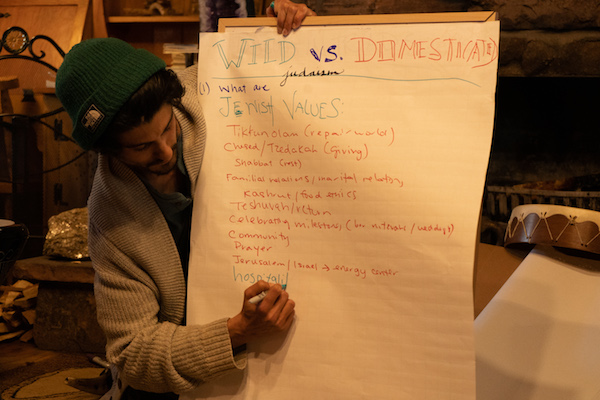 WILD VS. DOMESTICATED
judaism
(1) What are
JEWISH VALUES:
Tikkun olam (repair world)
Chesed / Tzedakah (giving)
Shabbat (rest)
Familial relations / marital relations
Kashrut / food ethics
Teshuvah / return
Celebrating milestones (bar mitzvahs / weddings)
Community
Prayer
Jerusalem / Israel → energy center
hospitali
THE
NORTH
FACE